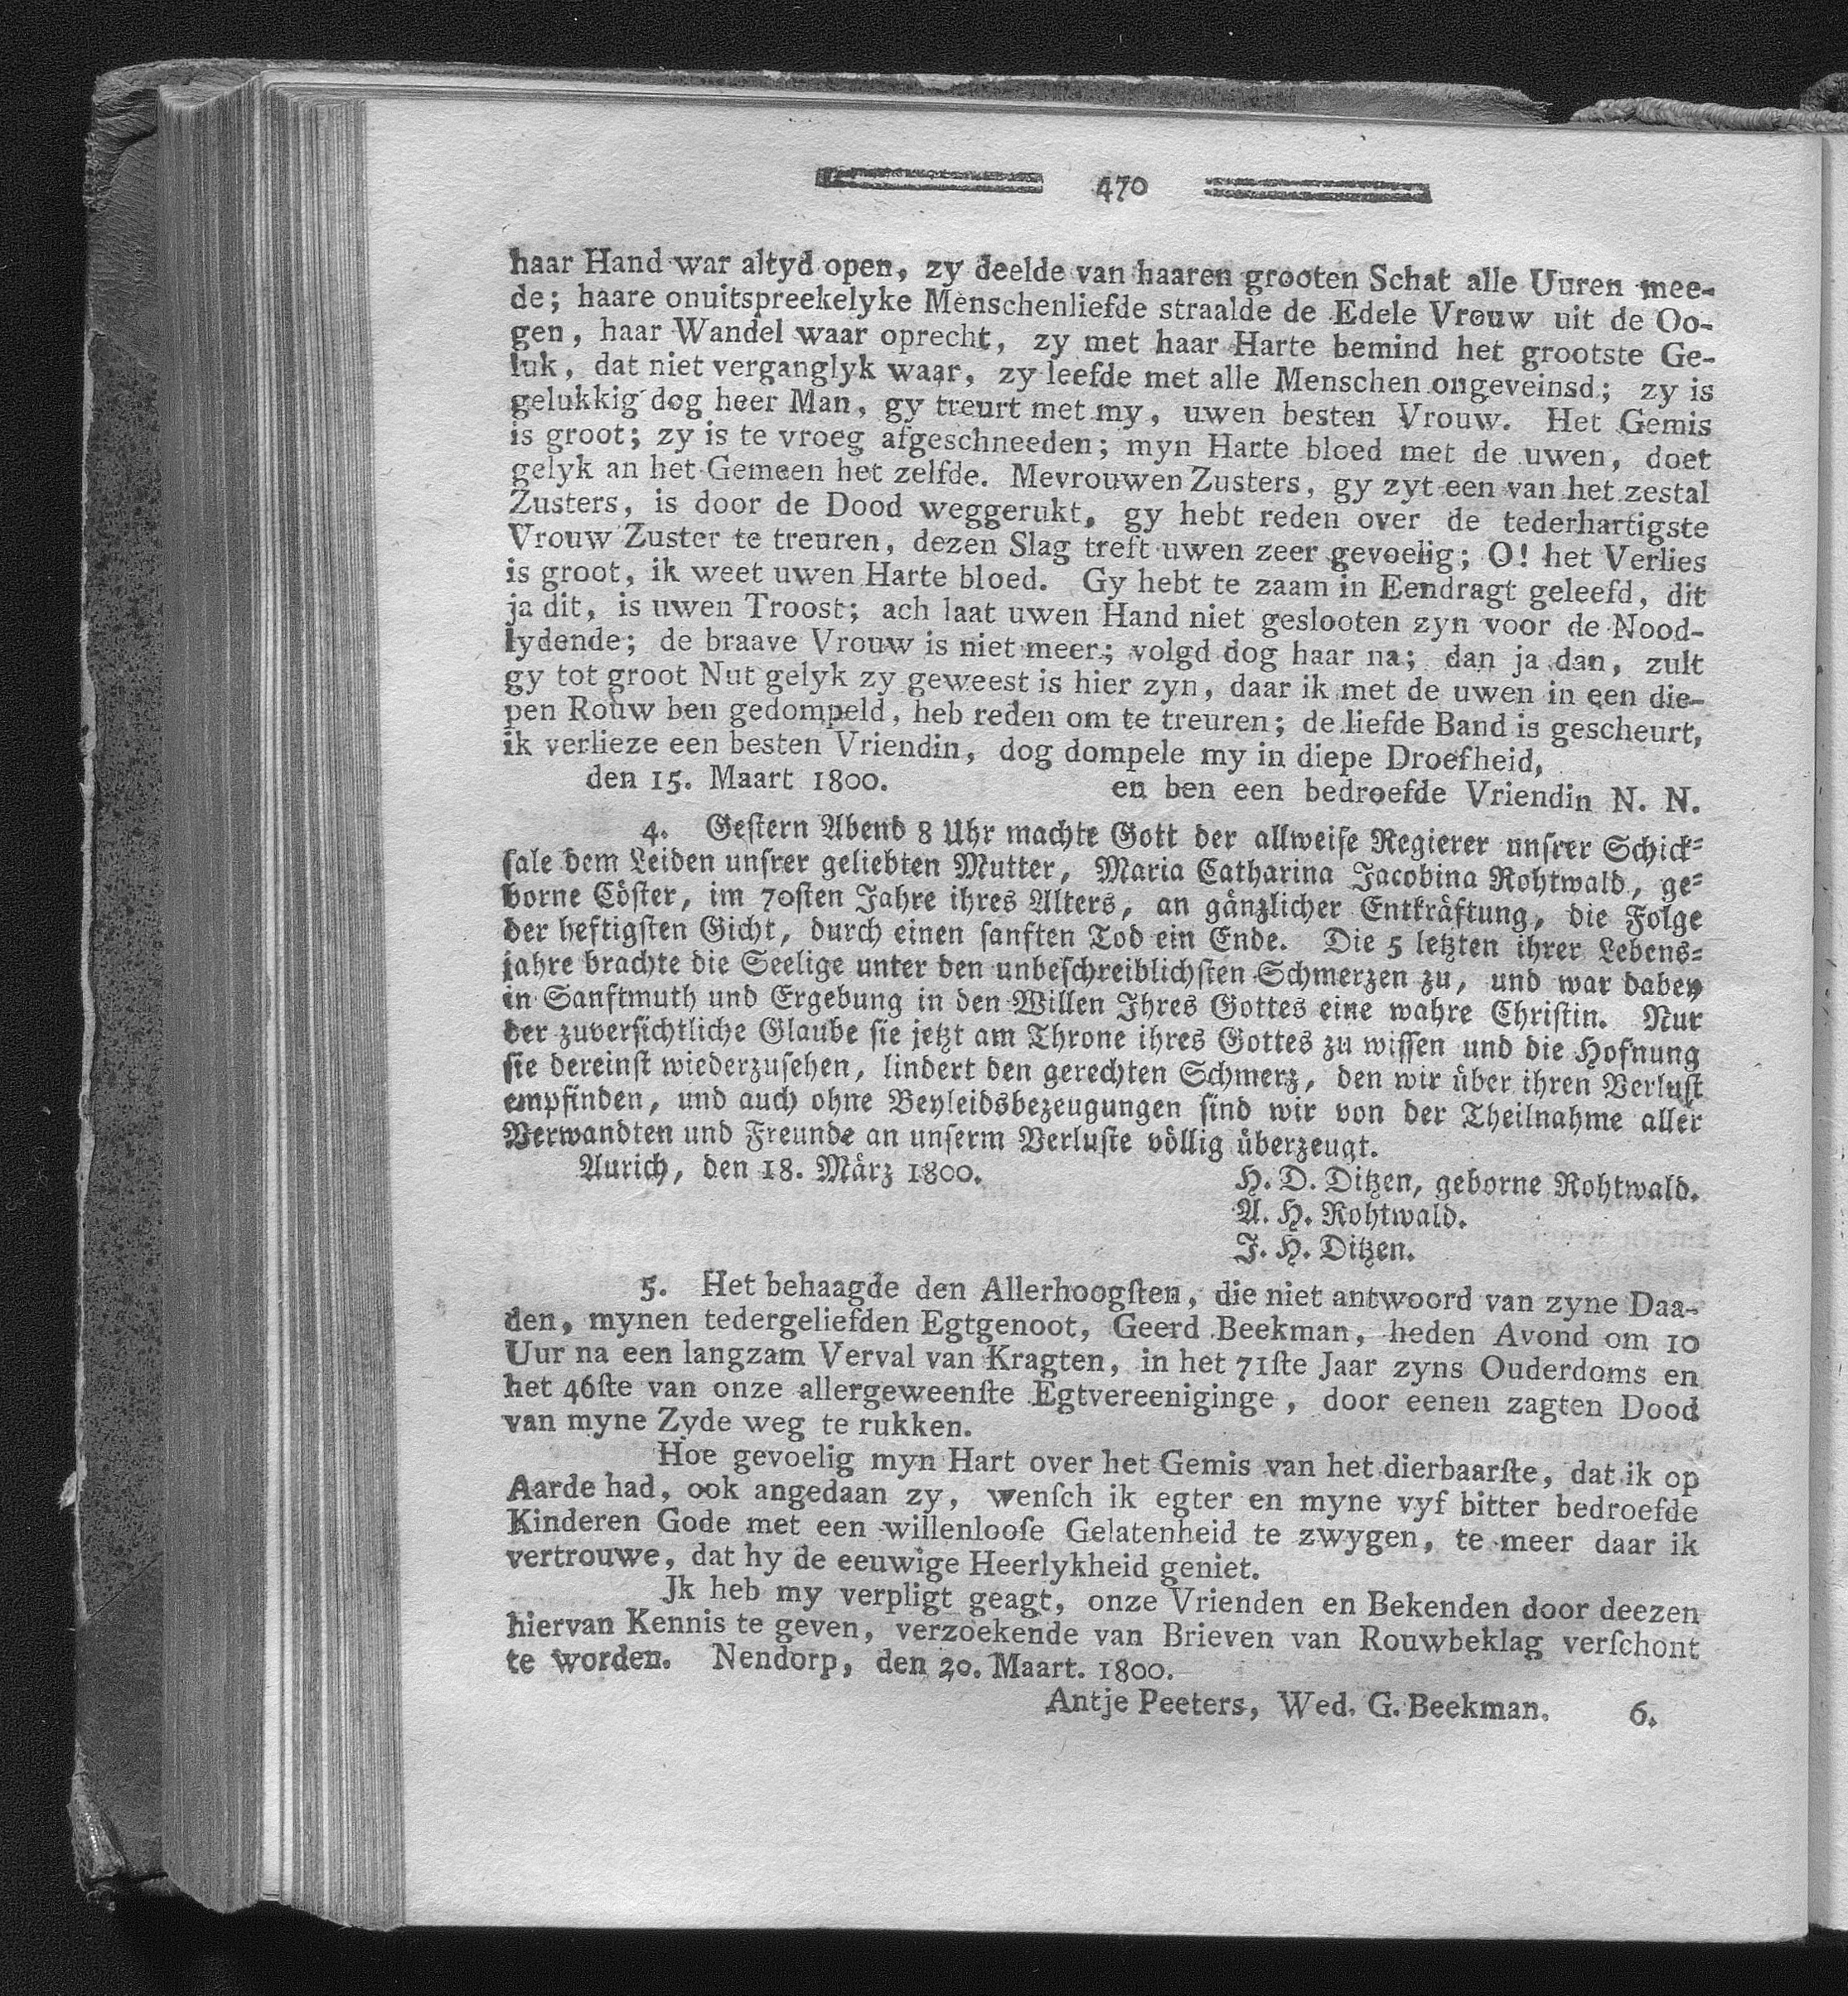 470
haar Hand war altyd open, zy deelde van haaren grooten Schat alle Uuren mee-
de; haare onuitspreekelyke Menschenliefde straalde de Edele Vrouw uit de Oo-
gen, haar Wandel waar oprecht, zy met haar Harte bemind het grootste Ge-
luk, dat niet verganglyk waar, zy leefde met alle Menschen ongeveinsd; zy is
gelukkig dog heer Man, gy treurt met my, uwen besten Vrouw. Het Gemis
is groot; zy is te vroeg afgeschneeden; myn Harte bloed met de uwen, doet
gelyk an het Gemeen het zelfde. Mevrouwen Zusters, gy zyt een van het zestal
Zusters, is door de Dood weggerukt, gy hebt reden over de tederhartigste
Vrouw Zuster te treuren, dezen Slag treft uwen zeer gevoelig; O! het Verlies
is groot, ik weet uwen Harte bloed. Gy hebt te zaam in Eendragt geleefd, dit
ja dit, is uwen Troost; ach laat uwen Hand niet geslooten zyn voor de Nood-
lydende; de braave Vrouw is niet meer; volgd dog haar na; dan ja dan, zult
gy tot groot Nut gelyk zy geweest is hier zyn, daar ik met de uwen in een die-
pen Rouw ben gedompeld, heb reden om te treuren; de liefde Band is gescheurt,
ik verlieze een besten Vriendin, dog dompele my in diepe Droefheid,
den 15. Maart 1800. en ben een bedroefde Vriendin N. N.
4. Gestern Abend 8 Uhr machte Gott der allweise Regierer unsrer Schick-
sale dem Leiden unsrer geliebten Mutter, Maria Catharina Jacobina Rohtwald, ge-
borne Cöster, im 70sten Jahre ihres Alters, an gänzlicher Entkräftung, die Folge
der heftigsten Gicht, durch einen sanften Tod ein Ende. Die 5 letzten ihrer Lebens-
jahre brachte die Seelige unter den unbeschreiblichsten Schmerzen zu, und war dabey
in Sanftmuth und Ergebung in den Willen Ihres Gottes eine wahre Christin. Nur
der zuversichtliche Glaube sie jetzt am Throne ihres Gottes zu wissen und die Hofnung
sie dereinst wiederzusehen, lindert den gerechten Schmerz, den wir über ihren Verlust
empfinden, und auch ohne Beyleidsbezeugungen sind wir von der Theilnahme aller
Verwandten und Freunde an unserm Verluste völlig überzeugt.
Aurich, den 18. März 1800. H. D. Ditzen, geborne Rohtwald.
A. H. Rohtwald.
J. H. Ditzen.
5. Het behaagde den Allerhoogſten, die niet antwoord van zyne Daa-
den, mynen tedergeliefden Egtgenoot, Geerd Beekman, heden Avond om 10
Uur na een langzam Verval van Kragten, in het 71ſte Jaar zyns Ouderdoms en
het 46ſte van onze allergeweenſte Egtvereeniginge, door eenen zagten Dood
van myne Zyde weg te rukken.
Hoe gevoelig myn Hart over het Gemis van het dierbaarſte, dat ik op
Aarde had, ook angedaan zy, wenſch ik egter en myne vyf bitter bedroefde
Kinderen Gode met een willenlooſe Gelatenheid te zwygen, te meer daar ik
vertrouwe, dat hy de eeuwige Heerlykheid geniet.
Jk heb my verpligt geagt, onze Vrienden en Bekenden door deezen
hiervan Kennis te geven, verzoekende van Brieven van Rouwbeklag verſchont
te worden. Nendorp, den 20. Maart. 1800.
Antje Peeters, Wed. G. Beekman. 6.